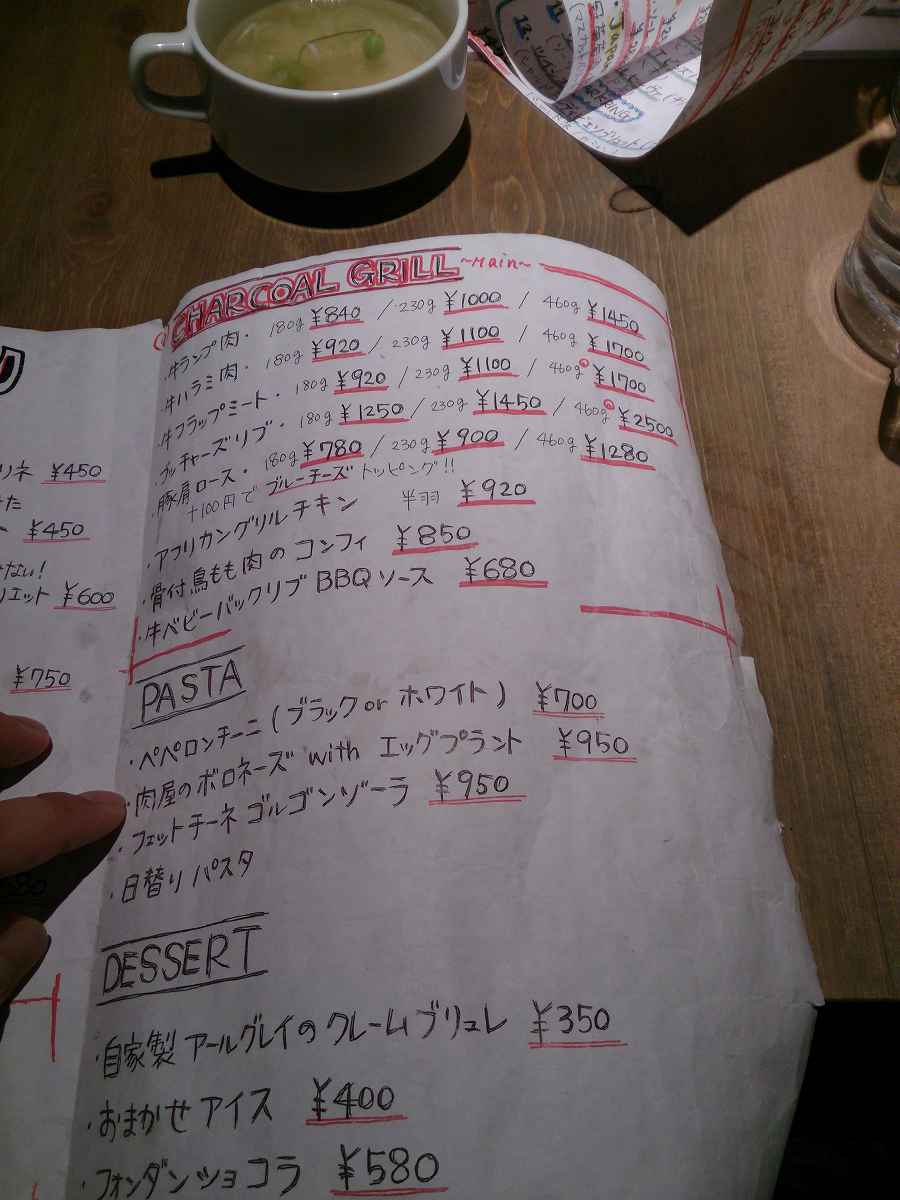 CHARCOAL GRILL ~Main~
・牛ランプ肉・ 180g ¥840 / 230g ¥1000 / 460g ¥1450
・牛ハラミ肉・ 180g ¥920 / 230g ¥1100 / 460g ¥1700
・牛フラップミート・ 180g ¥920 / 230g ¥1100 / 460g ¥1700
・ブッチャーズリブ・ 180g ¥1250 / 230g ¥1450 / 460g ¥2500
・豚肩ロース・ 180g ¥780 / 230g ¥900 / 460g ¥1280
+100円で ブルーチーズ トッピング!!
・アフリカングリルチキン 半羽 ¥920
・骨付鳥もも肉のコンフィ ¥850
・牛ベビーバックリブBBQソース ¥680
PASTA
・ペペロンチーニ(ブラック or ホワイト) ¥700
・肉屋のボロネーズ with エッグプラント ¥950
・フェットチーネゴルゴンゾーラ ¥950
・日替りパスタ
DESSERT
・自家製アールグレイのクレームブリュレ ¥350
・おまかせアイス ¥400
・フォンダンショコラ ¥580
リネ ¥450
た
¥450
ない!
リエット ¥600
¥750